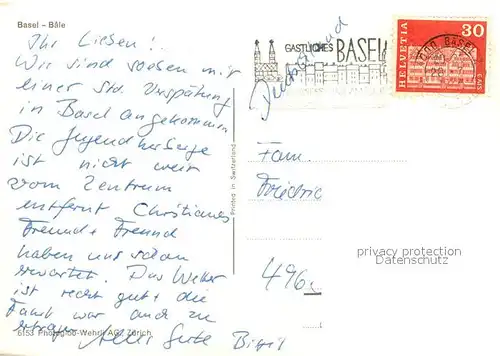 Basel – Bâle
Ihr Lieben!
Wir sind soeben mit
einer Std. Verspätung
in Basel angekommen
Die Jugendherberge
ist nicht weit
vom Zentrum
entfernt Christianes
Freund + Freund
haben uns schon
erwartet. Das Wetter
ist recht gut + die
Fahrt war auch zu
ertragen Alles Gute
6153 Photoglob-Wehrli AG, Zürich
Printed in Switzerland
GASTLICHES BASEL
Deutschland
HELVETIA 30
BASEL
Fam.
Friedric
496
privacy protection
Datenschutz